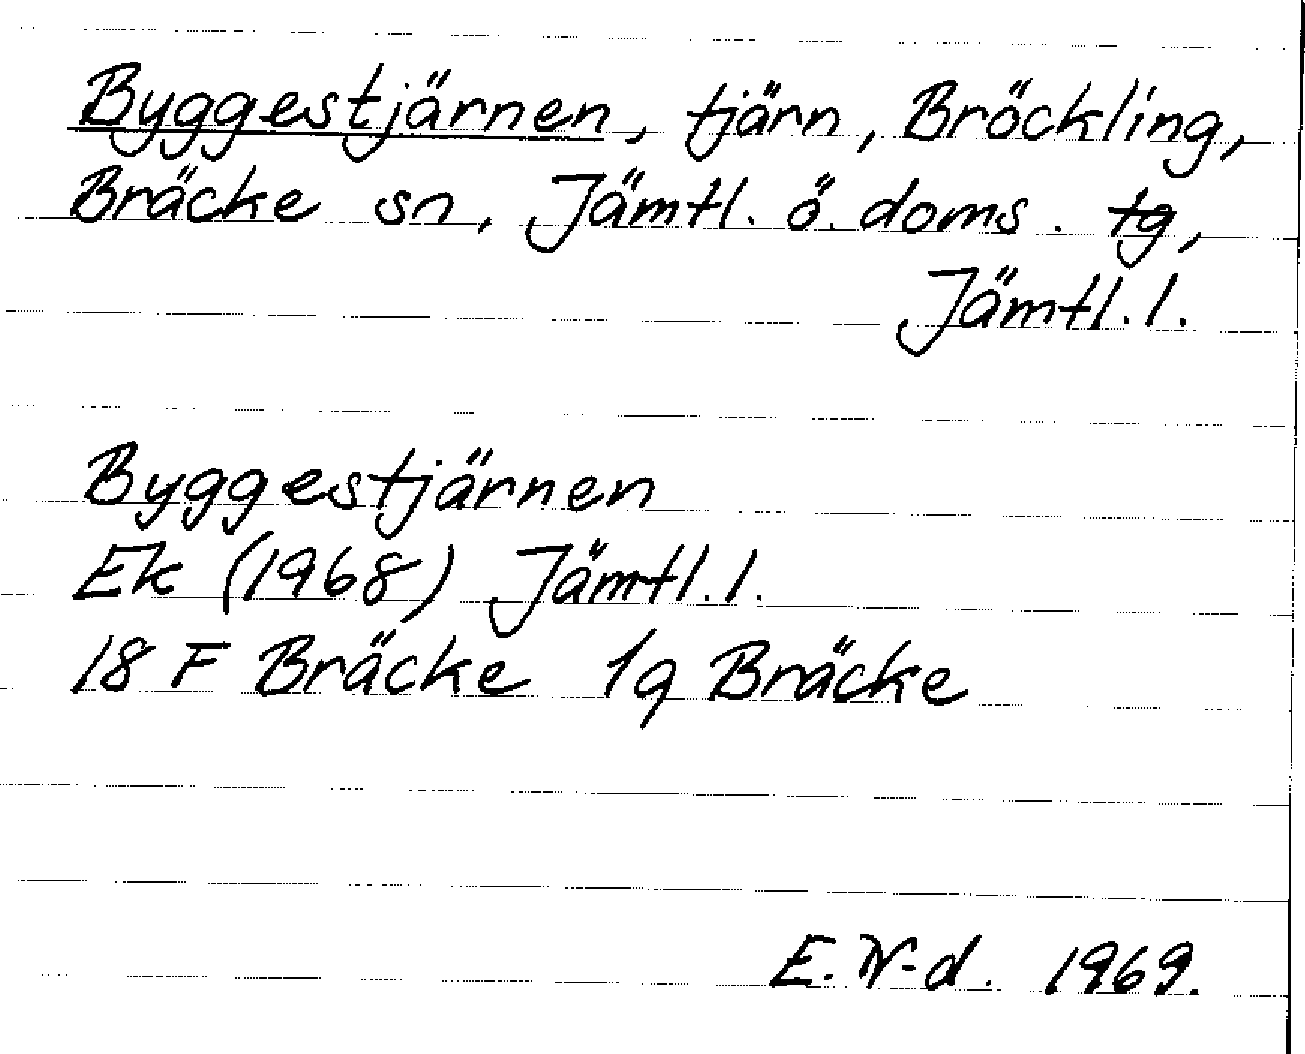 Byggestjärnen, tjärn, Bröckling,
Bräcke sn, Jämtl. ö. doms. tg,
Jämtl. l.
Byggestjärnen
Ek (1968) Jämtl. l.
18 F Bräcke 1q Bräcke
E. W-d. 1969.